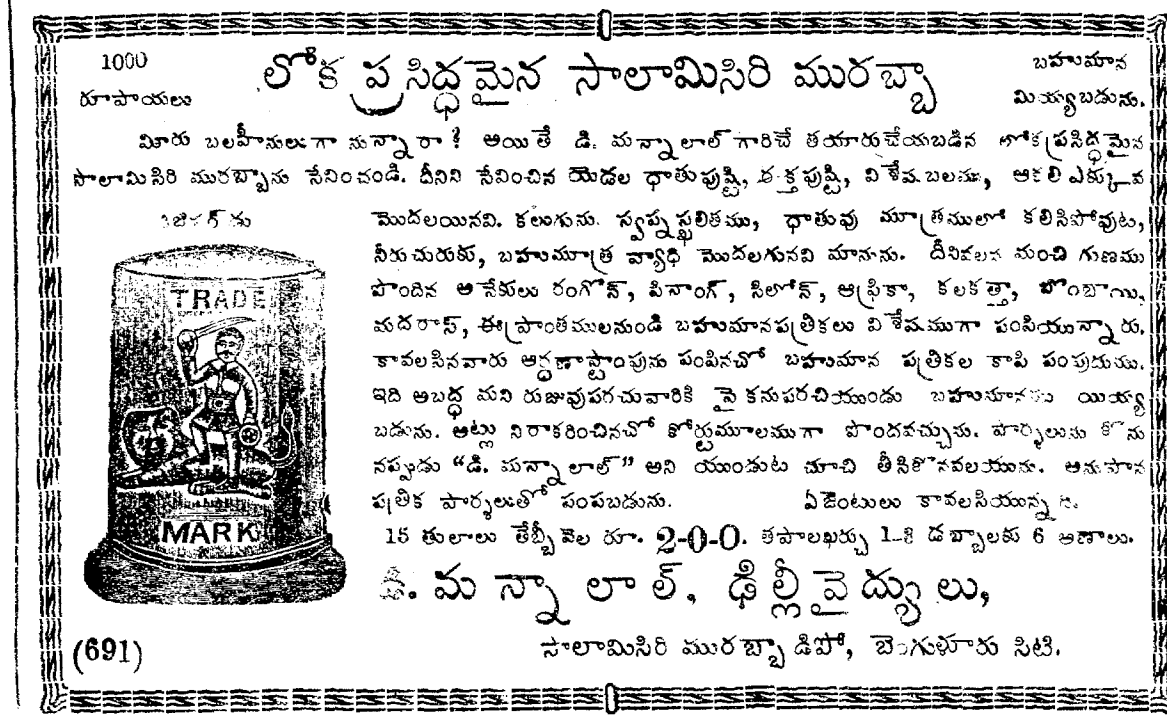 1000
రూపాయలు
లోక ప్రసిద్ధమైన సాలామిసిరి మురబ్బా
బహుమాన
మియ్యబడును.
మీరు బలహీనులుగా నున్నారా? అయితే డి. మన్నాలాల్ గారిచే తయారుచేయబడిన లోకప్రసిద్ధమైన
సాలామిసిరి మురబ్బాను సేవించండి. దీనిని సేవించిన యెడల ధాతుపుష్టి, రక్తపుష్టి, విశేష బలము, ఆకలి ఎక్కువ
మొదలయినవి. కలుగును. స్వప్నస్ఖలితము, ధాతువు మూత్రములో కలిసిపోవుట,
నీరుచురుకు, బహుమూత్ర వ్యాధి మొదలగునవి మానును. దీనివలన మంచి గుణము
పొందిన అనేకులు రంగోన్, పినాంగ్, సిలోన్, ఆఫ్రికా, కలకత్తా, బొంబాయి,
మదరాస్, ఈప్రాంతములనుండి బహుమానపత్రికలు విశేషముగా పంపియున్నారు.
కావలసినవారు అర్ధణాస్టాంపును పంపినచో బహుమాన పత్రికల కాపి పంపుదుము.
ఇది అబద్ధ మని రుజువుపరచువారికి పై కనుపరచియుండు బహుమానము యియ్య
బడును. అట్లు నిరాకరించినచో కోర్టుమూలముగా పొందవచ్చును. పార్శలును కొను
నప్పుడు “డి. మన్నాలాల్” అని యుండుట చూచి తీసికొనవలయును. అనుపాన
పత్రిక పార్శలుతో పంపబడును. ఏజెంటులు కావలసియున్నది.
TRADE
MARK
15 తులాలు తేబ్బీ వెల రూ. 2-0-0. తపాలఖర్చు 1-3 డబ్బాలకు 6 అణాలు.
డి. మన్నాలాల్, ఢిల్లీవైద్యులు,
(691)
సాలామిసిరి మురబ్బా డిపో, బెంగుళూరు సిటి.